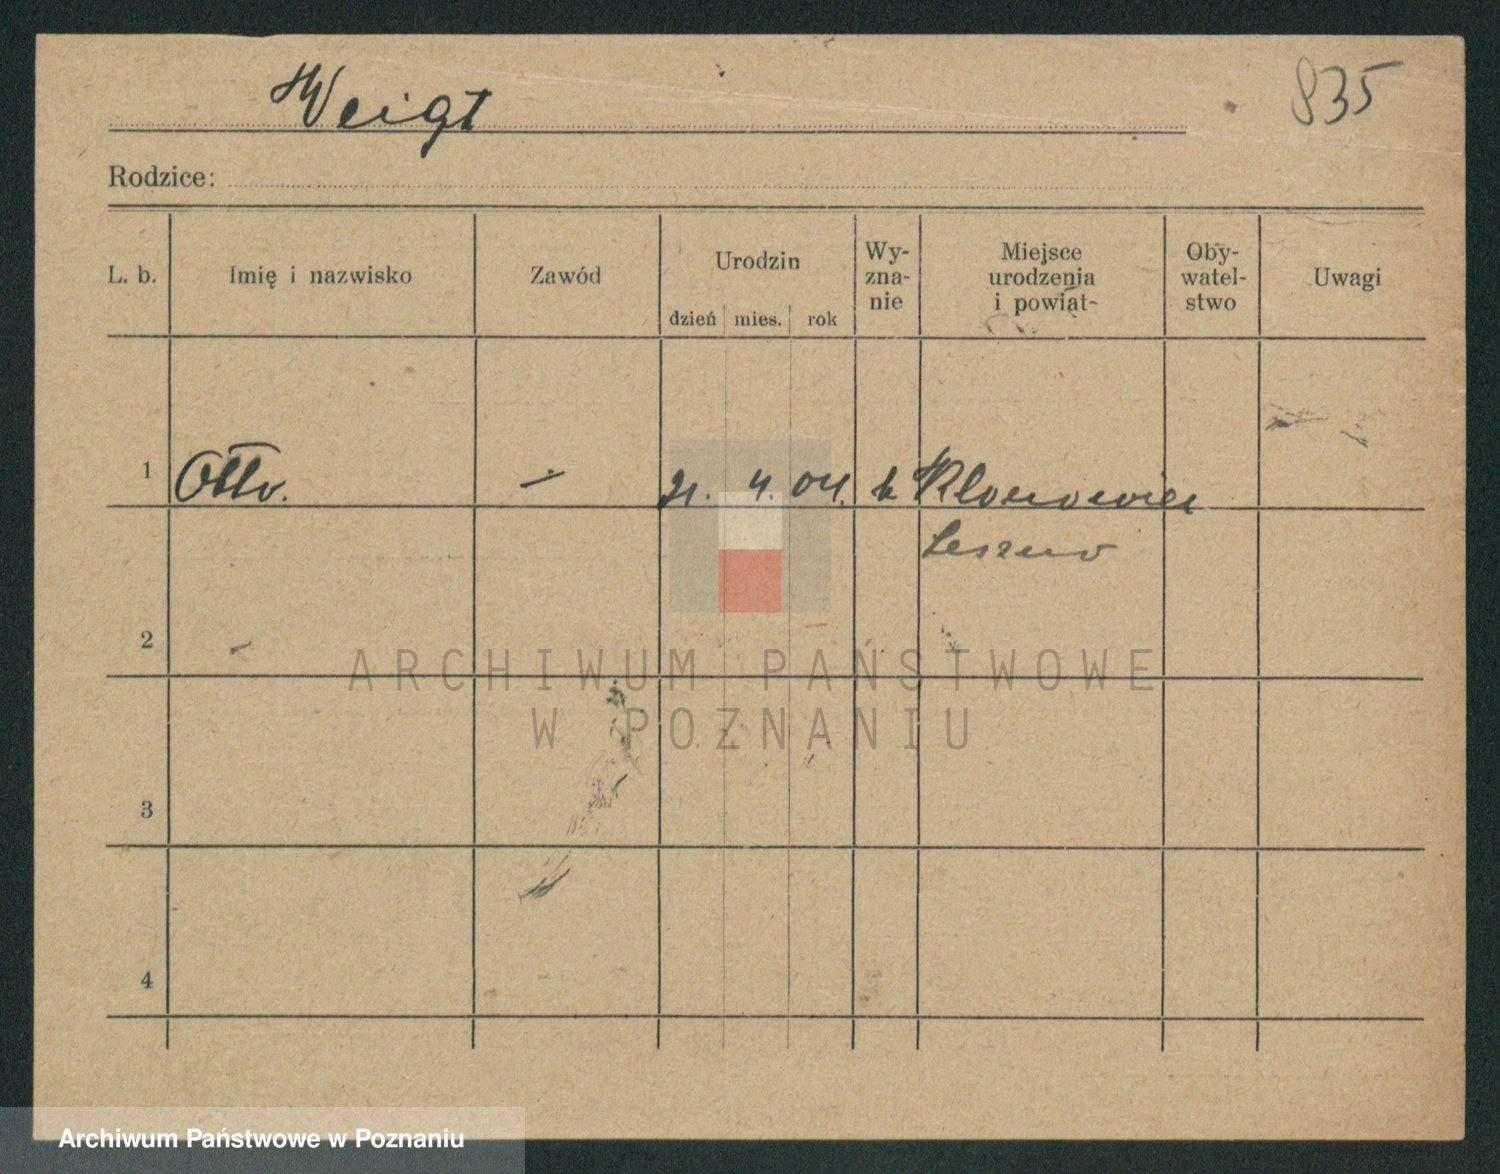 Weigt
835
Rodzice:
L. b. Imię i nazwisko Zawód Urodzin dzień mies. rok Wy- zna- nie Miejsce urodzenia i powiat- Oby- watel- stwo Uwagi
1 Otto. 21. 4. 04. k Klonowiec
Leszno
2
3
4
ARCHIWUM PAŃSTWOWE
W POZNANIU
Archiwum Państwowe w Poznaniu